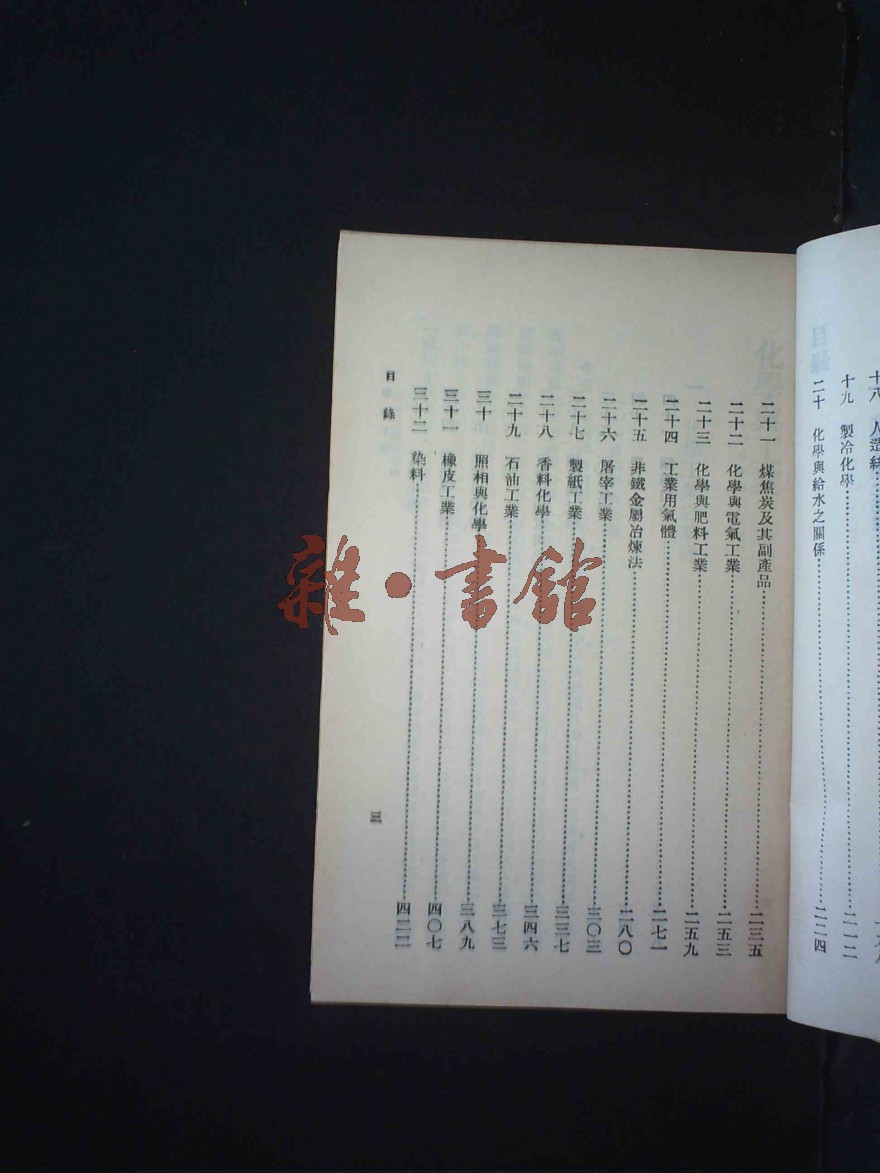 十八 人造絲
十九 製冷化學……二一二
二十 化學與給水之關係……二二四
二十一 煤焦炭及其副產品……二三五
二十二 化學與電氣工業……二五三
二十三 化學與肥料工業……二五九
二十四 工業用氣體……二七一
二十五 非鐵金屬冶煉法……二八〇
二十六 屠宰工業……三〇三
二十七 製紙工業……三三七
二十八 香料化學……三四六
二十九 石油工業……三七三
三十 照相與化學……三八九
三十一 橡皮工業……四〇七
三十二 染料……四二二
目錄
三
雜·書館